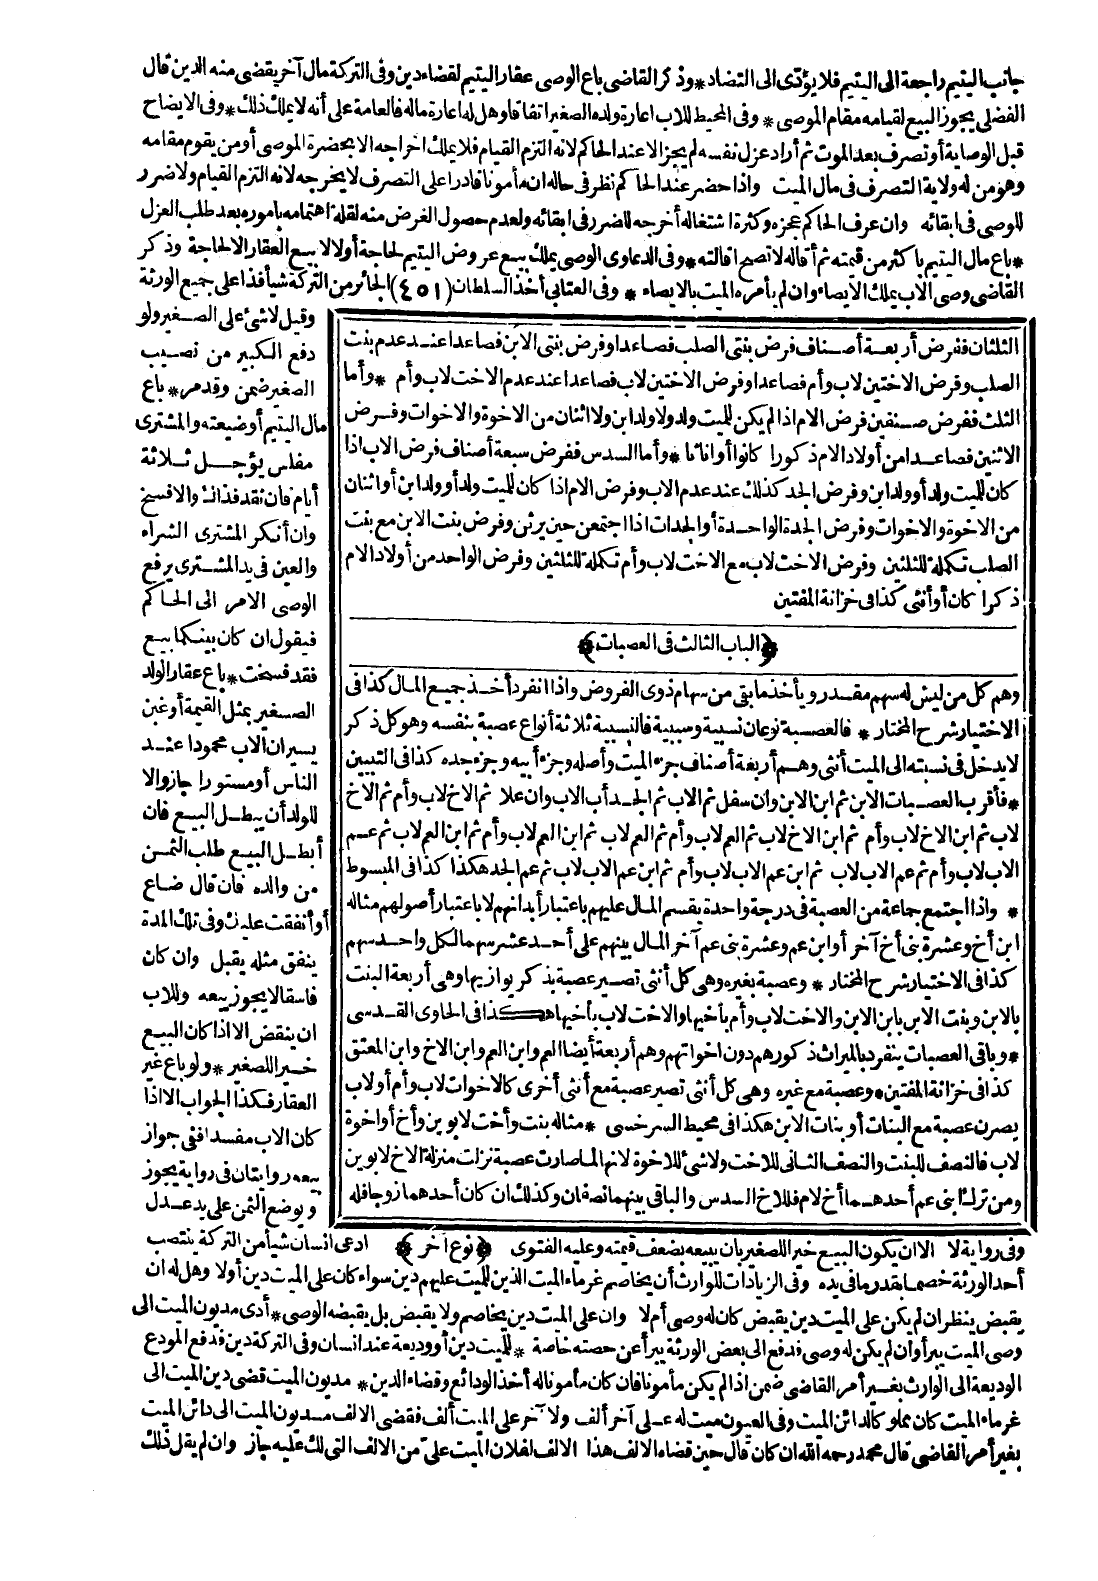 جانب اليتيم راجعة الى اليتيم فلا يؤدى الى التضاد * وذكر القاضى باع الوصى عقار اليتيم لقضاء دين وفى التركة مال آخر يقضى منه الدين قال
الفضلى يجوز البيع لقيامه مقام الموصى * وفى المحيط للاب اعارة ولده الصغير اتفاقا وهل له اعارة ماله فالعامة على أنه لا يملك ذلك * وفى الايضاح
قبل الوصاية أو تصرف بعد الموت ثم أراد عزل نفسه لم يجز الا عند الحاكم لانه التزم القيام فلا يملك اخراجه الا بحضرة الموصى أو من يقوم مقامه
وهو من له ولاية التصرف فى مال الميت واذا حضر عند الحاكم نظر فى حاله ان مأمونا قادرا على التصرف لا يخرجه لانه التزم القيام ولا ضرر
للوصى فى ابقائه وان عرف الحاكم عجزه وكثرة اشتغاله أخرجه للضرر فى ابقائه ولعدم حصول الغرض منه لقلة اهتمامه بأموره بعد طلب العزل
* باع مال اليتيم بأكثر من قيمته ثم أقاله لا تصح اقالته * وفى الدعاوى الوصى يملك بيع عروض اليتيم لحاجة أولا لا بيع العقار الا لحاجة وذكر
القاضى وصى الاب يملك الايصاء وان لم يأمره الميت بالايصاء * وفى العتابى أخذ السلطان (٤٥١) الجائر من التركة شيأ فذا على جميع الورثة
وقيل لا شئ على الصغير ولو
دفع الكبير من نصيب
الصغير ضمن وقد مر * باع
مال اليتيم أو ضيعته والمشترى
مفلس يؤجل ثلاثة
أيام فان نقد فذاك والا فسخ
وان أنكر المشترى الشراء
والعين فى يد المشترى يرفع
الوصى الامر الى الحاكم
فيقول ان كان بينكما بيع
فقد فسخت * باع عقار الولد
الصغير بمثل القيمة أو غبن
يسير ان الاب محمودا عند
الناس أو مستورا جاز ولا
للولد أن يبطل البيع فان
أبطل البيع طلب الثمن
من والده فان قال ضاع
أو أنفقت عليك وفى تلك المدة
ينفق مثله يقبل وان كان
فاسقا لا يجوز بيعه وللاب
ان ينقض الا اذا كان البيع
خيرا للصغير * ولو باع غير
العقار فكذا الجواب الا اذا
كان الاب مفسدا ففى جواز
بيعه روايتان فى رواية يجوز
ويوضع الثمن على يد عدل
الثلثان ففرض أربعة أصناف فرض بنتى الصلب فصاعدا وفرض بنتى الابن فصاعدا عند عدم بنت
الصلب وفرض الاختين لاب وأم فصاعدا وفرض الاختين لاب فصاعدا عند عدم الاخت لاب وأم * وأما
الثلث ففرض صنفين فرض الام اذا لم يكن للميت ولد ولا ولد ابن ولا اثنان من الاخوة والاخوات وفرض
الاثنين فصاعدا من أولاد الام ذكورا كانوا أو اناثا * وأما السدس ففرض سبعة أصناف فرض الاب اذا
كان للميت ولد أو ولد ابن وفرض الجد كذلك عند عدم الاب وفرض الام اذا كان للميت ولد أو ولد ابن أو اثنان
من الاخوة والاخوات وفرض الجدة الواحدة أو الجدات اذا اجتمعن حين يرثن وفرض بنت الابن مع بنت
الصلب تكملة للثلثين وفرض الاخت لاب مع الاخت لاب وأم تكملة للثلثين وفرض الواحد من أولاد الام
ذكرا كان أو أنثى كذا فى خزانة المفتين
﴿الباب الثالث فى العصبات﴾
وهم كل من ليس له سهم مقدر ويأخذ ما بقى من سهام ذوى الفروض واذا انفرد أخذ جميع المال كذا فى
الاختيار شرح المختار * فالعصبة نوعان نسبية وسببية فالنسبية ثلاثة أنواع عصبة بنفسه وهو كل ذكر
لا يدخل فى نسبته الى الميت أنثى وهم أربعة أصناف جزء الميت وأصله وجزء أبيه وجزء جده كذا فى التبيين
* فأقرب العصبات الابن ثم ابن الابن وان سفل ثم الاب ثم الجد أب الاب وان علا ثم الاخ لاب وأم ثم الاخ
لاب ثم ابن الاخ لاب وأم ثم ابن الاخ لاب ثم العم لاب وأم ثم العم لاب ثم ابن العم لاب وأم ثم ابن العم لاب ثم عم
الاب لاب وأم ثم عم الاب لاب ثم ابن عم الاب لاب وأم ثم ابن عم الاب لاب ثم عم الجد هكذا كذا فى المبسوط
* واذا اجتمع جماعة من العصبة فى درجة واحدة يقسم المال عليهم باعتبار أبدانهم لا باعتبار أصولهم مثاله
ابن أخ وعشرة بنى أخ آخر أو ابن عم وعشرة بنى عم آخر المال بينهم على أحد عشر سهما لكل واحد سهم
كذا فى الاختيار شرح المختار * وعصبة بغيره وهى كل أنثى تصير عصبة بذكر يوازيها وهى أربعة البنت
بالابن وبنت الابن بابن الابن والاخت لاب وأم بأخيها والاخت لاب بأخيها هكذا فى الحاوى القدسى
* وباقى العصبات ينفرد بالميراث ذكورهم دون اخواتهم وهم أربعة أيضا العم وابن العم وابن الاخ وابن المعتق
كذا فى خزانة المفتين * وعصبة مع غيره وهى كل أنثى تصير عصبة مع أنثى أخرى كالاخوات لاب وأم أو لاب
يصرن عصبة مع البنات أو بنات الابن هكذا فى محيط السرخسى * مثاله بنت وأخت لابوين وأخ أو اخوة
لاب فالنصف للبنت والنصف الثانى للاخت ولا شئ للاخوة لانها لما صارت عصبة نزلت منزلة الاخ لابوين
ومن ترك ابنى عم أحدهما أخ لام فللاخ السدس والباقى بينهما نصفان وكذلك ان كان أحدهما زوجا فله
وفى رواية لا الا ان يكون البيع خيرا للصغير بان يبيعه بضعف قيمته وعليه الفتوى ﴿نوع آخر﴾ ادعى انسان شيأ من التركة ينتصب
أحد الورثة خصما بقدر ما فى يده وفى الزيادات للوارث أن يخاصم غرماء الميت الذين للميت عليهم دين سواء كان على الميت دين أولا وهل له ان
يقبض ينظر ان لم يكن على الميت دين يقبض كان له وصى أم لا وان على الميت دين يخاصم ولا يقبض بل يقبضه الوصى * أدى مديون الميت الى
وصى الميت يبرأ وان لم يكن له وصى فدفع الى بعض الورثة يبرأ عن حصته خاصة * للميت دين أو وديعة عند انسان وفى التركة دين فدفع المودع
الوديعة الى الوارث بغير أمر القاضى ضمن اذا لم يكن مأمونا فان كان مأمونا له أخذ الودائع وقضاء الدين * مديون الميت قضى دين الميت الى
غرماء الميت كان مملوكا لدائن الميت وفى العيون ميت له على آخر ألف ولآخر على الميت ألف فقضى الالف مديون الميت الى دائن الميت
بغير أمر القاضى قال محمد رحمه الله ان كان قال حين قضاء الالف هذا الالف لفلان الميت علىّ من الالف التى لك عليه جاز وان لم يقل ذلك